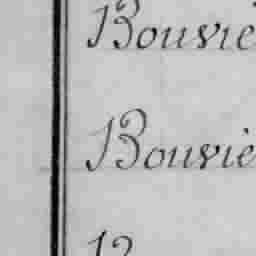 Bouvie
Bouviè